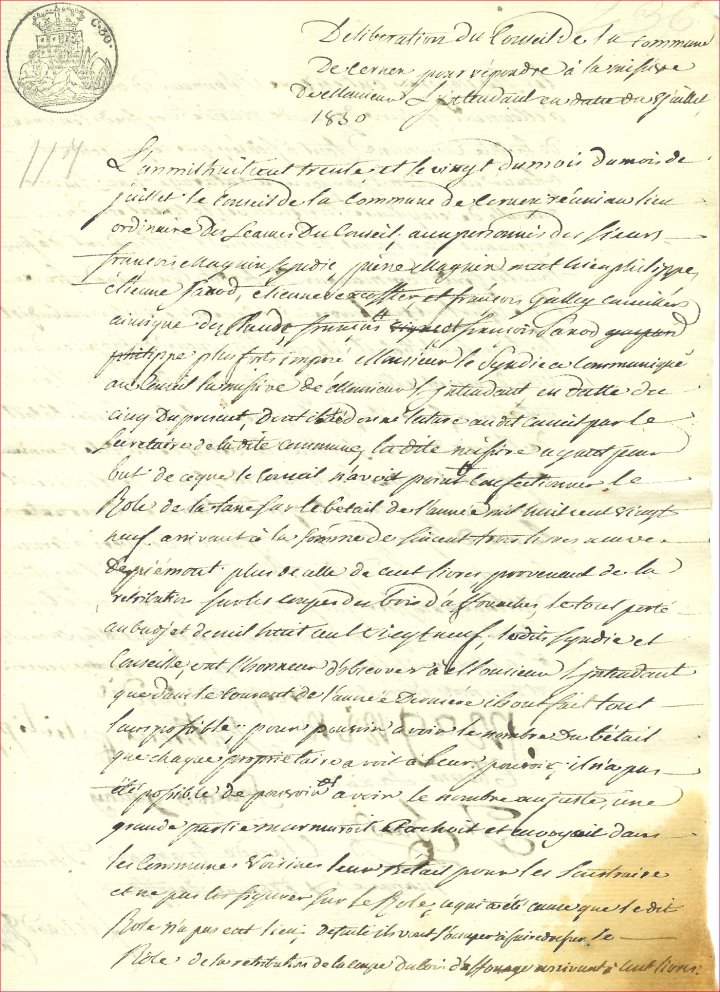 C. 50.
Deliberation du Conseil de la Commune
de Cernex pour répondre à la missive
de Monsieur L'intendant en datte du 5 juillet
1830
L'an mil huit cent trente et le vingt du mois du mois de
juillet le Conseil de la Commune de Cernex réuni au lieu
ordinaire des Séances du Conseil, aux personnes des sieurs
françois Magnin syndic pierre Magnin mathieu philippe,
étienne et françois Gallay conseillers
françois
philippe plus fort imposé Monsieur le Syndic a Communiqué
au Conseil la missive de Monsieur l'intendant en datte du
cinq du present, dont été donné lecture au dit conseil par le
Secretaire de la dite commune, la dite missive ayant pour
but de ce que le Conseil n'avoit point Confectionner le
Role de la taxe sur le bétail de l'année mil huit cent vingt
neuf arrivant à la somme de trois livres neuve
de piémont plus de celle de cent livres provenant de la
retribution sur les coupes des bois d'affouages le tout porté
au budjet de mil huit cent vingt neuf, les dits syndic et
Conseille, ont l'honneur d'observer à Monsieur l'intendant
que dans le courant de l'année Derniere ils ont fait tout
leur possible pour pouvoir avoir le nombre du bétail
que chaque proprietaire avoit à leur pouvoir, il n'a pas
étés possible de pouvoir avoir le nombre au juste, une
grande partie murmuroit Cachoit et envoyoit dans
les Communes Voisines leur bétail pour les Soustraire
et ne pas les figurer sur le Role, ce qui a été cause que le dit
Role n'a pas eut lieu, de suite ils vont s'ocuper à faire le
Role de la retribution de la coupe du bois d'affouage arrivant à cent livres.